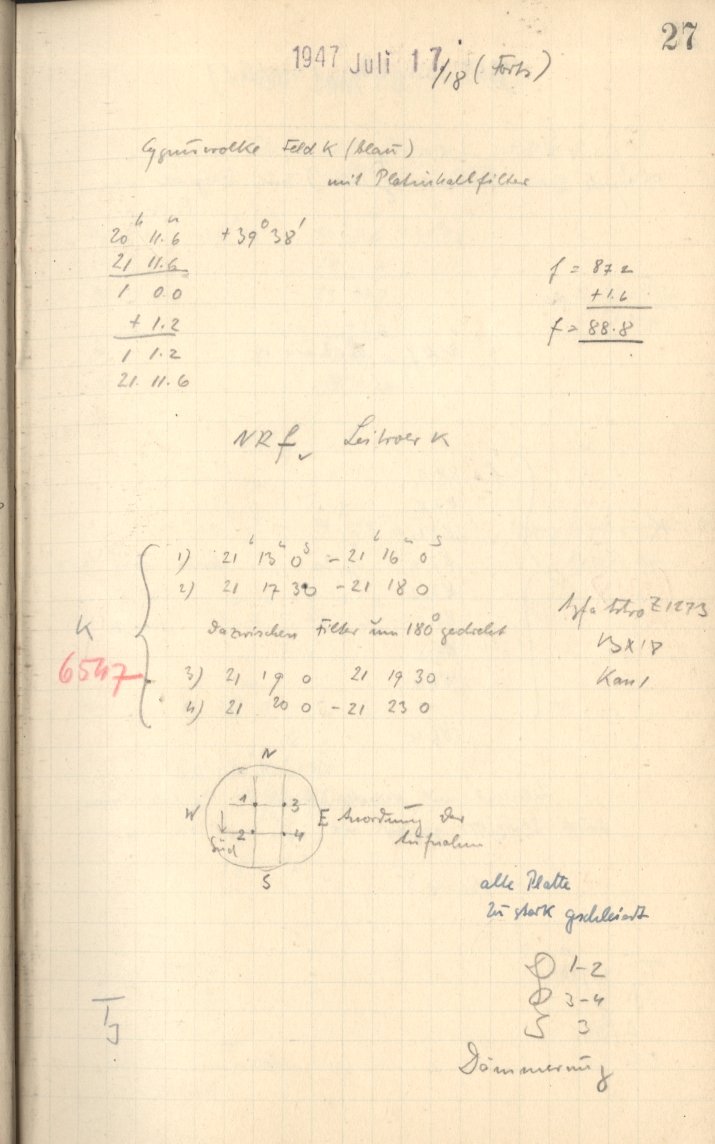 27
1947 Juli 17/18 (Forts)
Cygnuswolke Feld K (blau)
mit Platinhalbfilter
20ʰ 11.6ᵐ +39° 38'
21 11.6
1 0.0
+ 1.2
1 1.2
21. 11.6
f = 87.2
+1.6
f = 88.8
NR f, K
1) 21ʰ 13ᵐ 0ˢ - 21ʰ 16ᵐ 0ˢ
2) 21 17 30 - 21 18 0
dazwischen Filter um 180° gedreht
3) 21 19 0 21 19 30
4) 21 20 0 - 21 23 0
K
6547
Agfa Astro Z 1273
N
W 1 3 E Anordnung der
Aufnahmen
2 4
Süd
S
alle Platte
zu stark geschleiert
1-2
3-4
3
Dämmerung